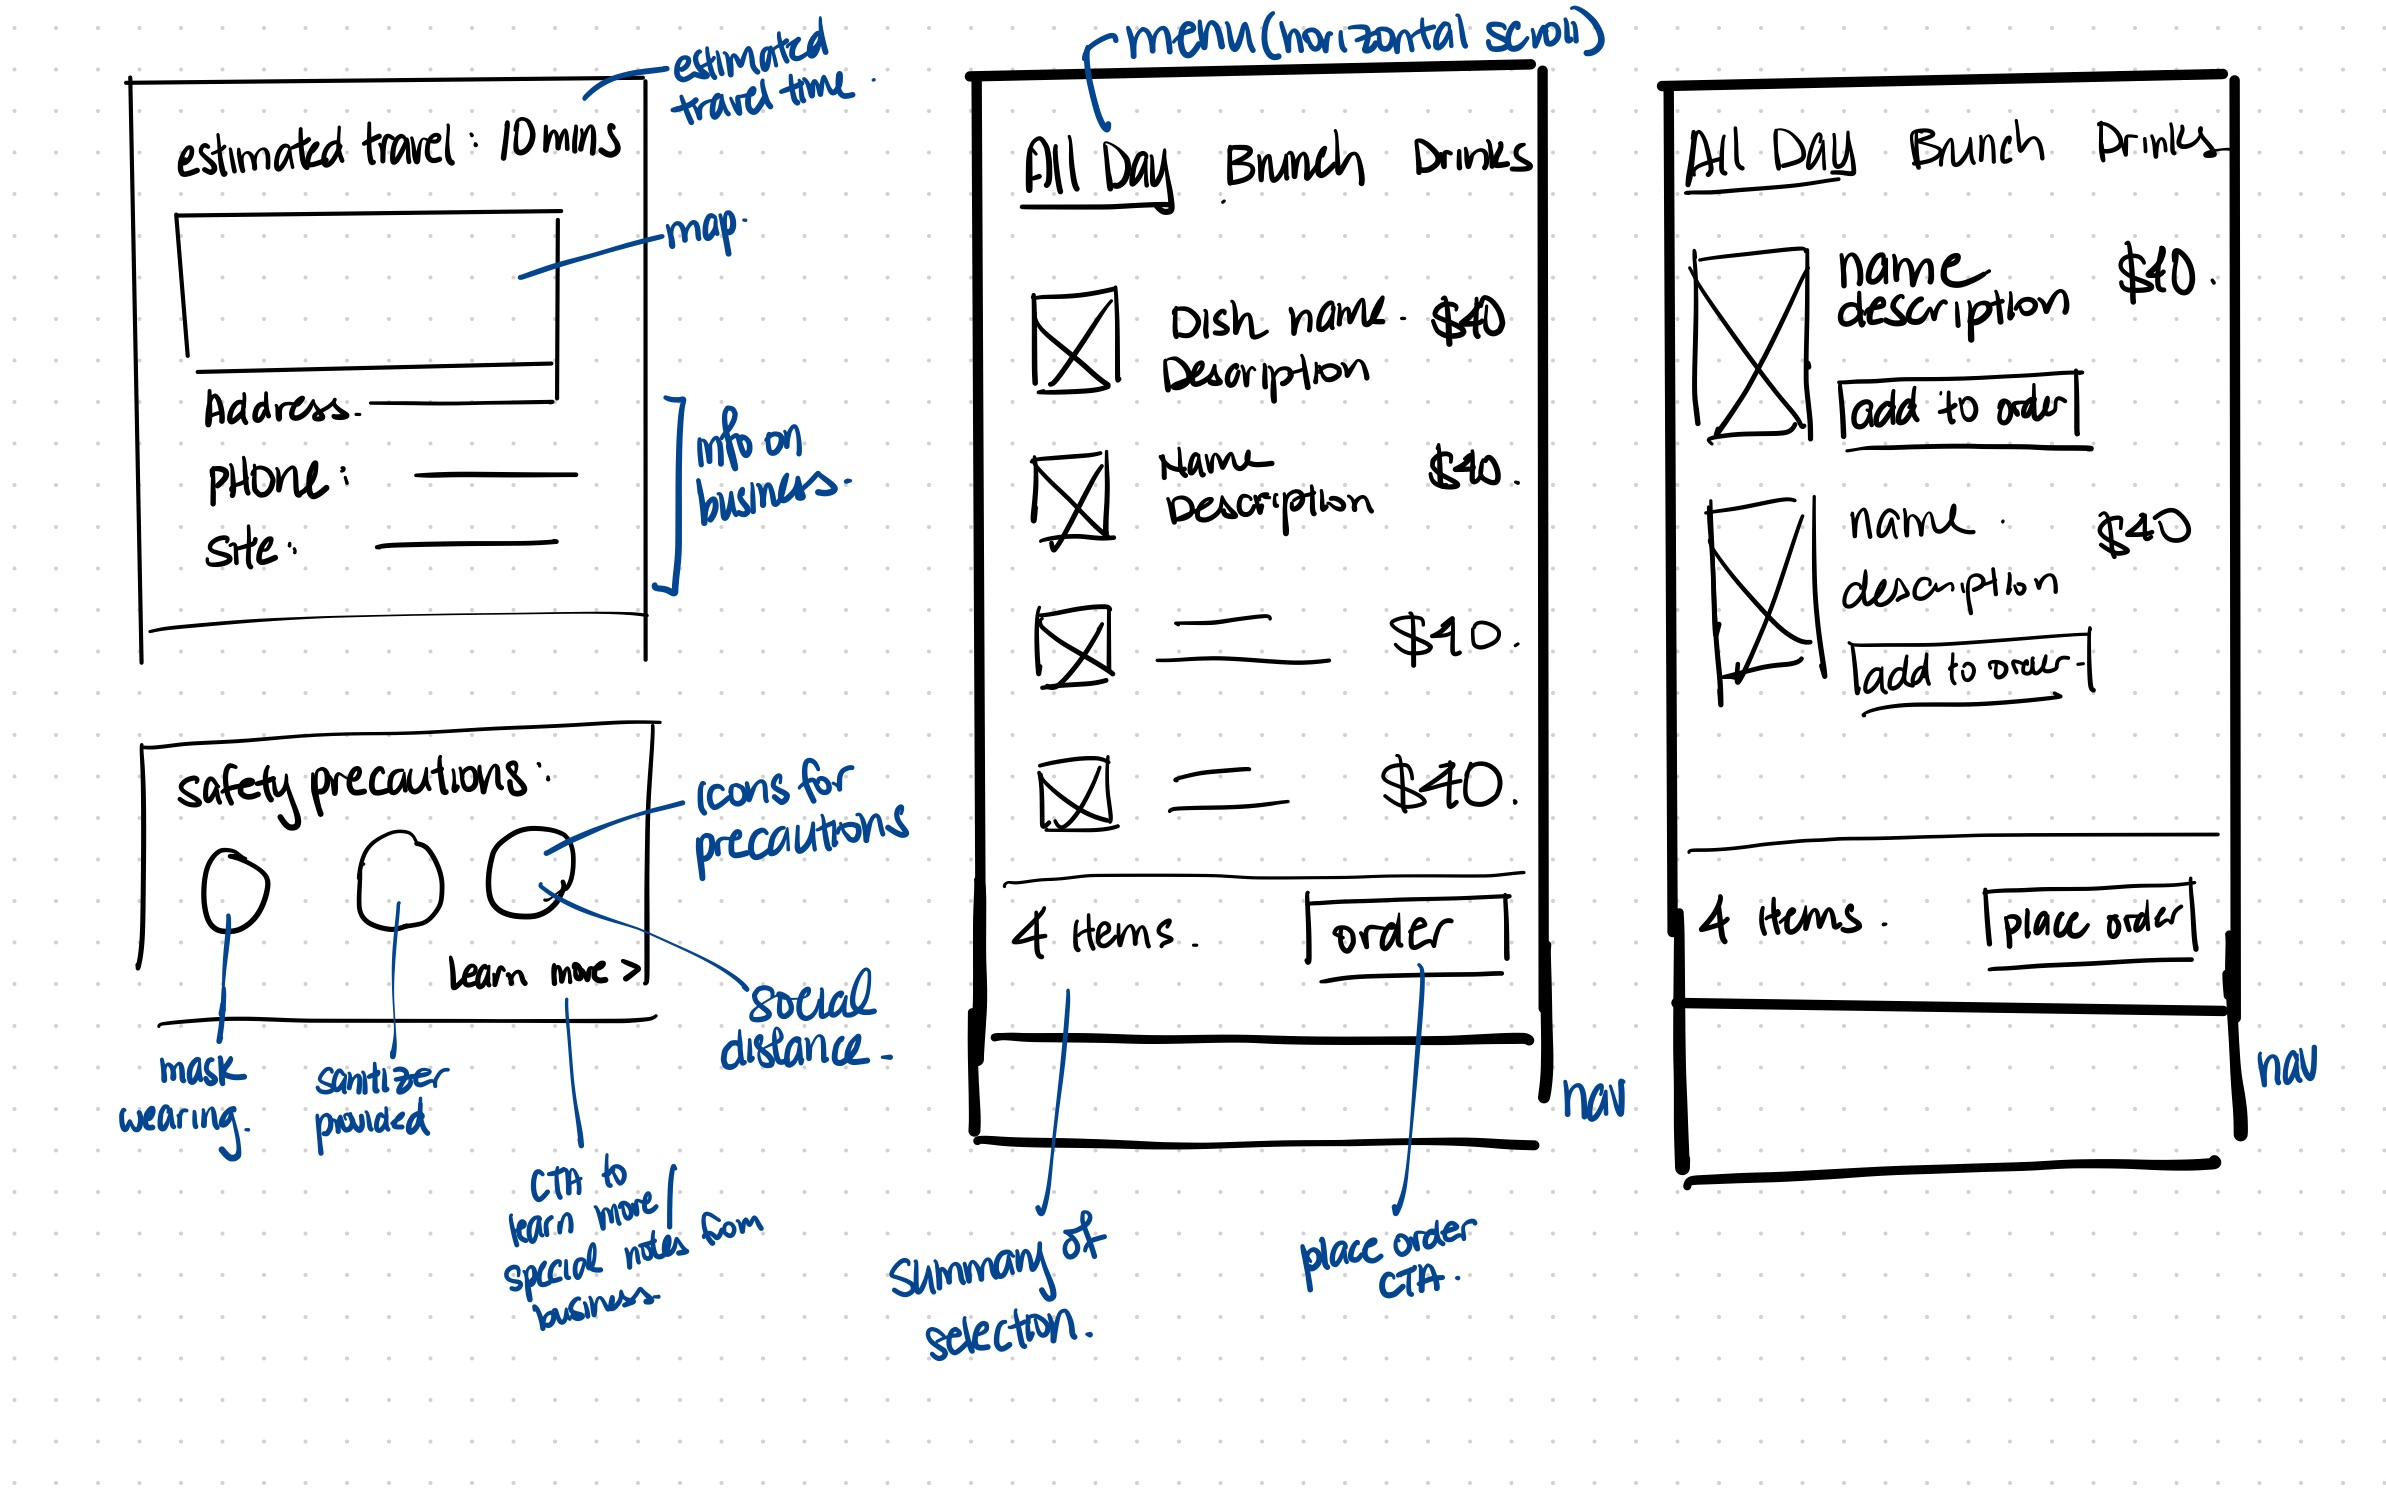 estimated
travel time.
estimated travel: 10 mins
map.
Address.
PHONE:
Site:
info on
business.
safety precautions:
icons for
precautions
Learn more >
social
distance.
mask
wearing.
sanitizer
provided
CTA to
learn more /
special notes from
business.
menu (horizontal scroll)
All Day Brunch Drinks
Dish name. $40
Description
Name $40.
Description
$40.
$40.
4 items. order
nav
summary of
selection.
place order
CTA.
All Day Brunch Drinks
name $40.
description
add to order
name. $40
description
add to order
4 items. place order
nav